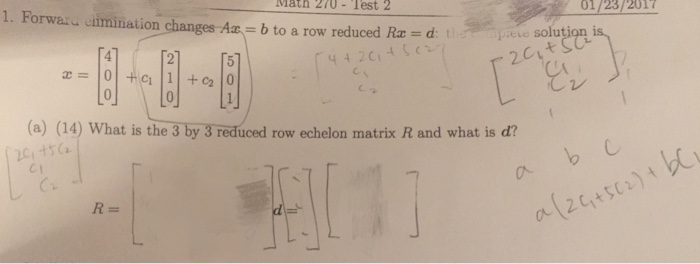 Math 270 - Test 2 01/23/2017
1. Forward elimination changes Ax = b to a row reduced Rx = d: the complete solution is
x = [4 0 0] + c₁ [2 1 0] + c₂ [5 0 1]
= [4 + 2c₁ + 5c₂ c₁ c₂]
[2c₁+5c₂ c₁ c₂]
(a) (14) What is the 3 by 3 reduced row echelon matrix R and what is d?
[2c₁+5c₂ c₁ c₂]
a b c
a(2c₁+5c₂)+bc₁
R = [ ] d = [ ]